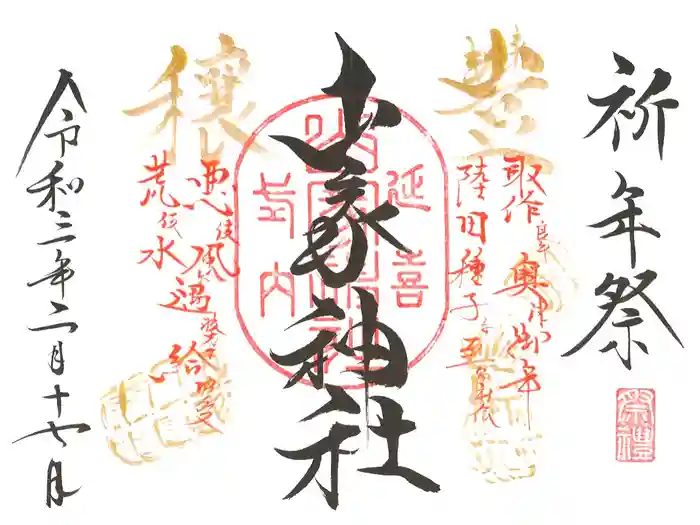 祈年祭
祭禮
豊
取作奥津御年
陸田種子
延喜
山家神社
式内
穣
悪風
荒水遇給
令和三年二月十七日